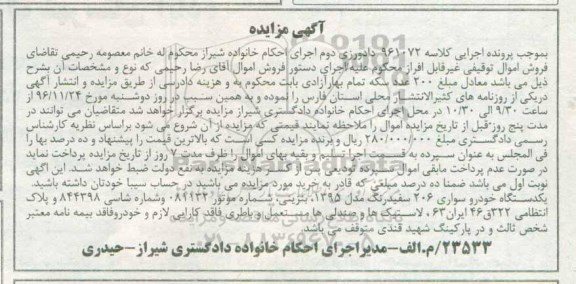 آگهی مزایده
بموجب پرونده اجرایی کلاسه ۹۶۱۰۷۲ دادورزی دوم اجرای احکام خانواده شیراز محکوم له خانم معصومه رحیمی تقاضای
فروش اموال توقیفی غیرقابل افراز محکوم علیه اجرای دستور فروش اموال آقای رضا رحیمی که نوع و مشخصات آن بشرح
ذیل می باشد معادل مبلغ ۲۰۰ عدد سکه تمام بهار آزادی بابت محکوم به و هزینه دادرسی از طریق مزایده و انتشار آگهی
دریکی از روزنامه های کثیرالانتشار محلی استان فارس را نموده و به همین سبب در روز دوشنبه مورخ ۹۶/۱۱/۲۴ از
ساعت ۹/۳۰ الی ۱۰/۳۰ در محل اجرای احکام خانواده دادگستری شیراز مزایده برگزار خواهد شد متقاضیان می توانند در
مدت پنج روز قبل از تاریخ مزایده اموال را ملاحظه نمایند قیمتی که مزایده از آن شروع می شود براساس نظریه کارشناس
رسمی دادگستری مبلغ ۲۸۰/۰۰۰/۰۰۰ ریال و برنده مزایده کسی است که بالاترین قیمت را پیشنهاد و ده درصد بها را
فی المجلس به عنوان سپرده به قسمت اجرا تسلیم و بقیه بهای اموال را ظرف مدت روز از تاریخ مزایده پرداخت نماید
در صورت عدم پرداخت مابقی اموال سپرده تودیعی پس از کسر هزینه مزایده به نفع دولت ضبط خواهد شد. این آگهی
نوبت اول می باشد ضمنا ده درصد مبلغی که قادر به خرید مورد مزایده می باشید در حساب سیبا خودتان داشته باشید.
یکدستگاه خودرو سواری ۲۰۶ سفیدرنگ مدل ۱۳۹۵، بنزینی، شماره موتور ۰۸۹۱۳۲ وشماره شاسی ۸۴۴۳۹۸ و پلاک
انتظامی ۳۲۲ق۴۶ ایران۶۳، لاستیک ها و صندلی ها مستعمل و باطری فاقد کارایی لازم و خودروفاقد بیمه نامه معتبر
شخص ثالث و در پارکینگ شهید قندی متوقف می باشد.
۲۳۵۳۳/م.الف-مدیراجرای احکام خانواده دادگستری شیراز-حیدری